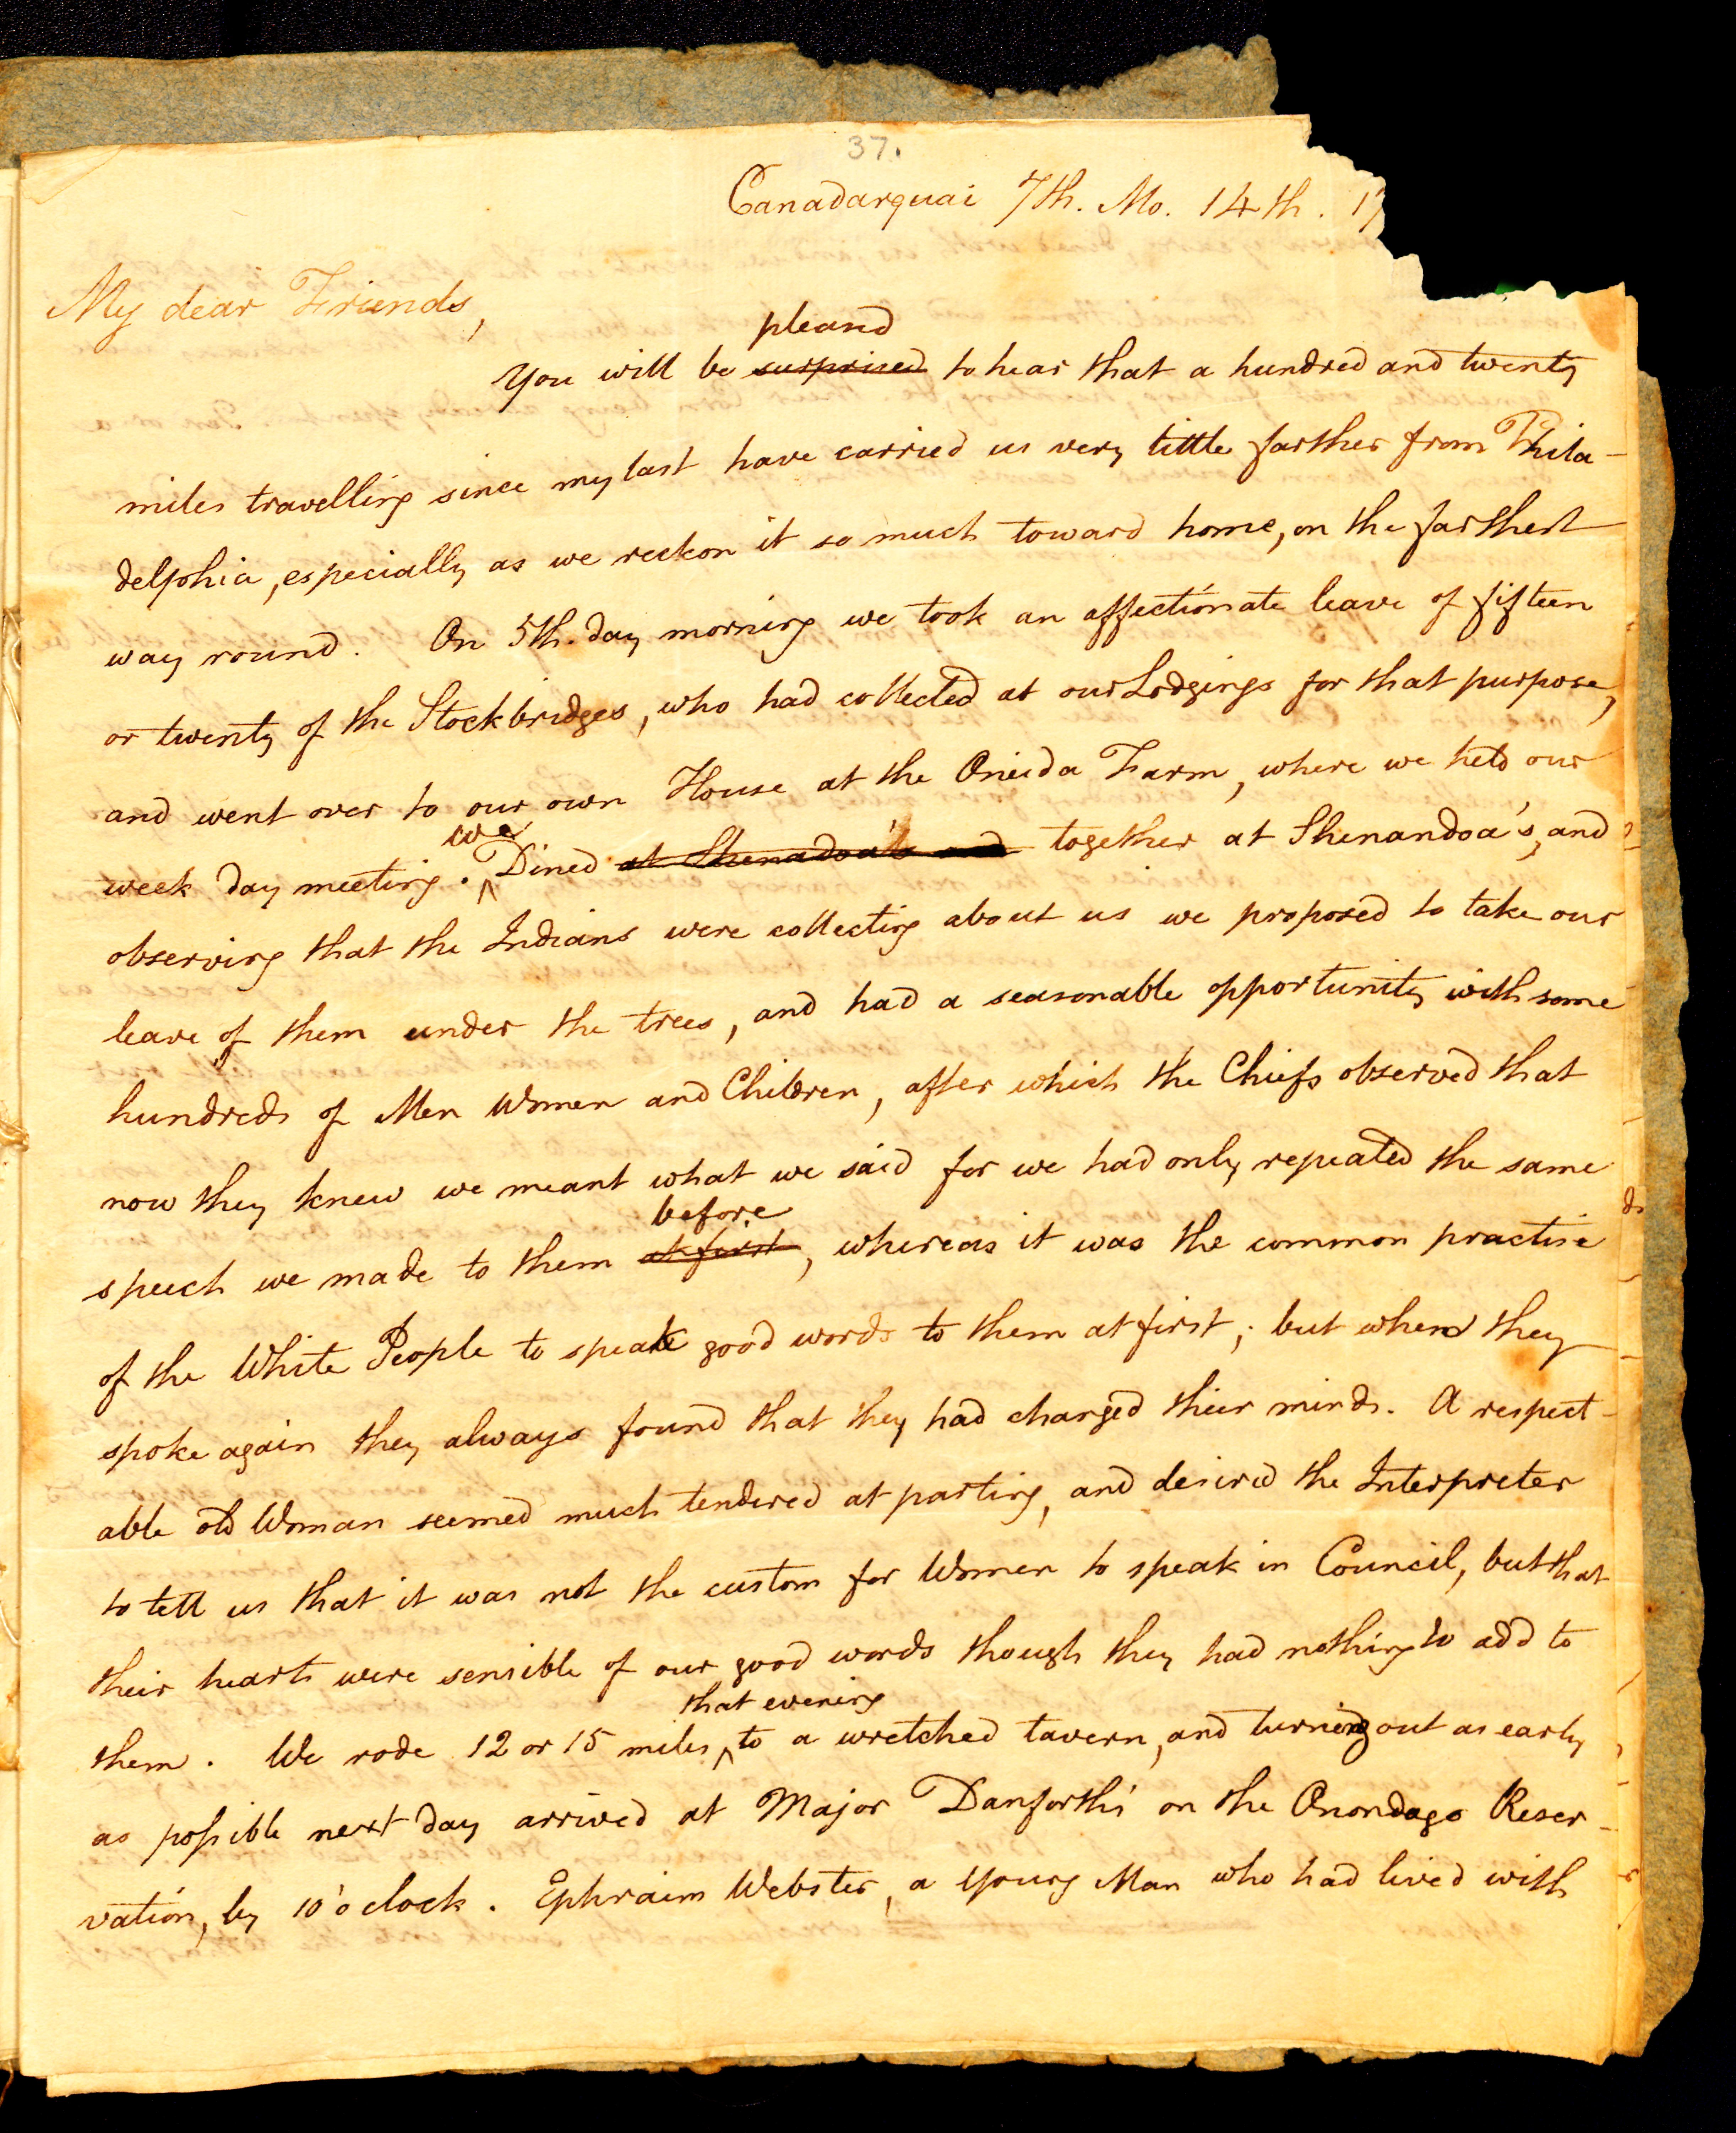 37.
Canadarquai 7th. Mo. 14th. 17
My dear Friends,
pleasd
You will be surprised to hear that a hundred and twenty
miles travelling since my last have carried us very little farther from Phila-
delphia, especially as we reckon it so much toward home, on the farthest
way round. On 5th. day morning we took an affectionate leave of fifteen
or twenty of the Stockbridges, who had collected at our Lodgings for that purpose,
and went over to our own House at the Oneida Farm, where we held our
we
week day meeting. ^ Dined at Shenadoa's and together at Shenandoa's, and
observing that the Indians were collecting about us we proposed to take our
leave of them under the trees, and had a seasonable opportunity with some
hundreds of Men Women and Children, after which the Chiefs observed that
now they knew we meant what we said for we had only repeated the same
before
speech we made to them at first, whereas it was the common practise
of the White People to speak good words to them at first; but when they
spoke again they always found that they had changed their minds. A respect-
able old Woman seemed much tendered at parting, and desired the Interpreter
to tell us that it was not the custom for Women to speak in Council, but that
their hearts were sensible of our good words though they had nothing to add to
that evening
them. We rode 12 or 15 miles ^ to a wretched tavern, and turning out as early
as possible next day arrived at Major Danforth's on the Onondago Reser-
vation, by 10 o'clock. Ephraim Webster, a young Man who had lived with